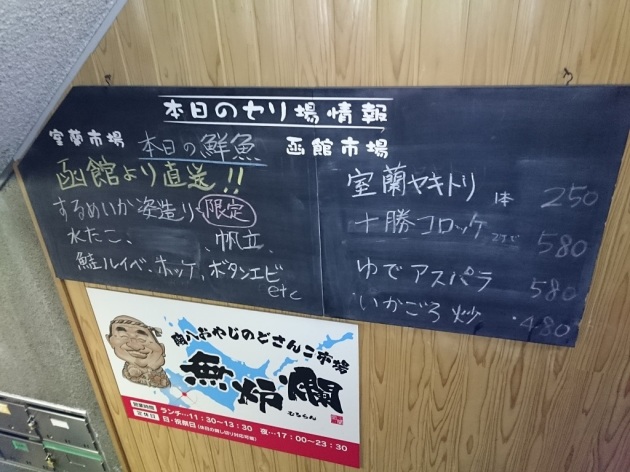 本日のセリ場情報
室蘭市場 本日の鮮魚 函館市場
函館より直送!!
するめいか姿造り 限定
水たこ、 、帆立、
鮭ルイベ、ホッケ、ボタンエビ
etc
室蘭ヤキトリ 1本 250
十勝コロッケ 580
ゆでアスパラ 580
いかごろ炒 ・480
南八おやじのどさんこ市場
無炉爛
むろらん
営業時間 ランチ…11:30~13:30 夜…17:00~23:30
定休日 日・祝祭日